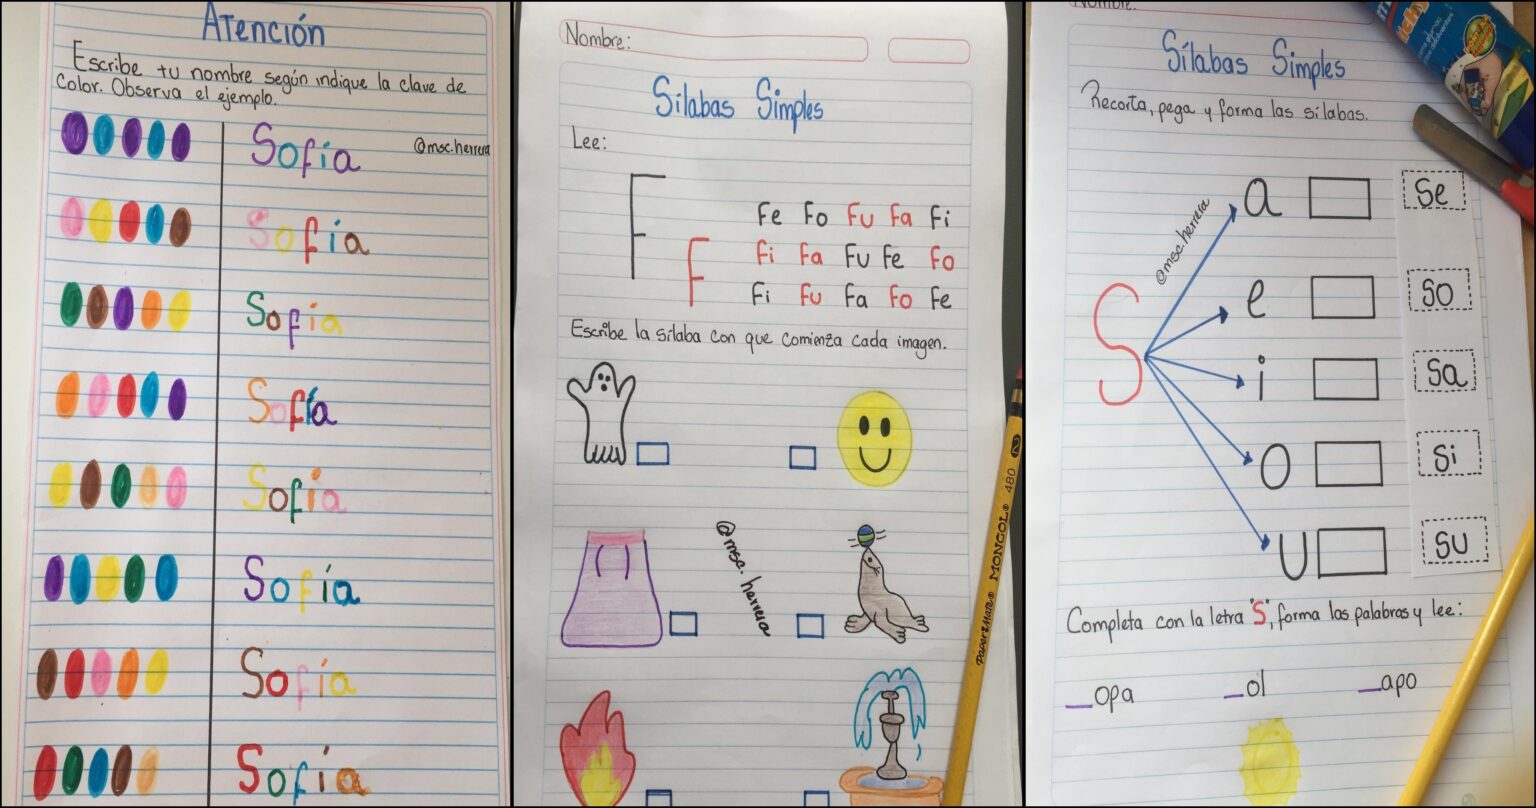 Atención
Escribe tu nombre según indique la clave de
Color. Observa el ejemplo.
@msc.herrera
Sofía
Sofía
Sofía
Sofía
Sofía
Sofía
Sofía
Sofía
Nombre:
Sílabas Simples
Lee:
F
F
Fe Fo Fu Fa Fi
Fi Fa Fu Fe Fo
Fi Fu Fa Fo Fe
Escribe la sílaba con que comienza cada imagen.
@msc.herrera
Paper Mate® MONGOL® 480 2
Nombre:
Sílabas Simples
Recorta, pega y forma las sílabas.
@msc.herrera
S
a
e
i
o
u
Se
So
Sa
Si
Su
Completa con la letra "S", forma las palabras y lee:
_opa _ol _apo